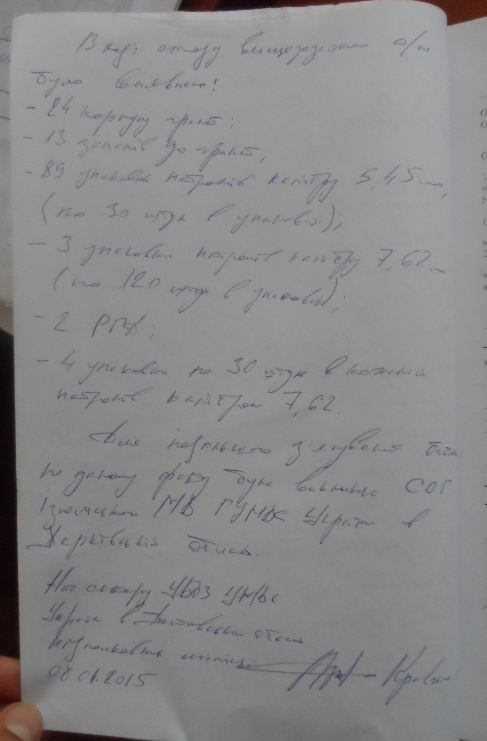 В ході огляду вищевказаного а/м
було виявлено:
- 24 корпуси гранат;
- 13 запалів до гранат;
- 89 упаковок патронів калібру 5,45 мм,
(по 30 штук в упаковці);
- 3 упаковки патронів калібру 7,62 мм
(по 120 штук в упаковці);
- 2 РПГ;
- 4 упаковки по 30 штук в кожній
патронів калібром 7,62.
Для подальшого з'ясування
по даному факту було викликано СОГ
Ізюмського МВ ГУМВС України в
Харківській області.
УБОЗ УМВС
України в Полтавській області
підполковник міліції
2015